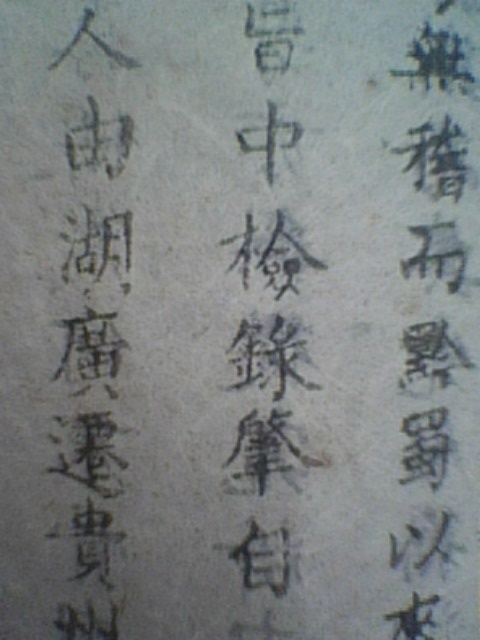 無稽而黔蜀以來
旨中檢錄肇自
人由湖廣遷貴州